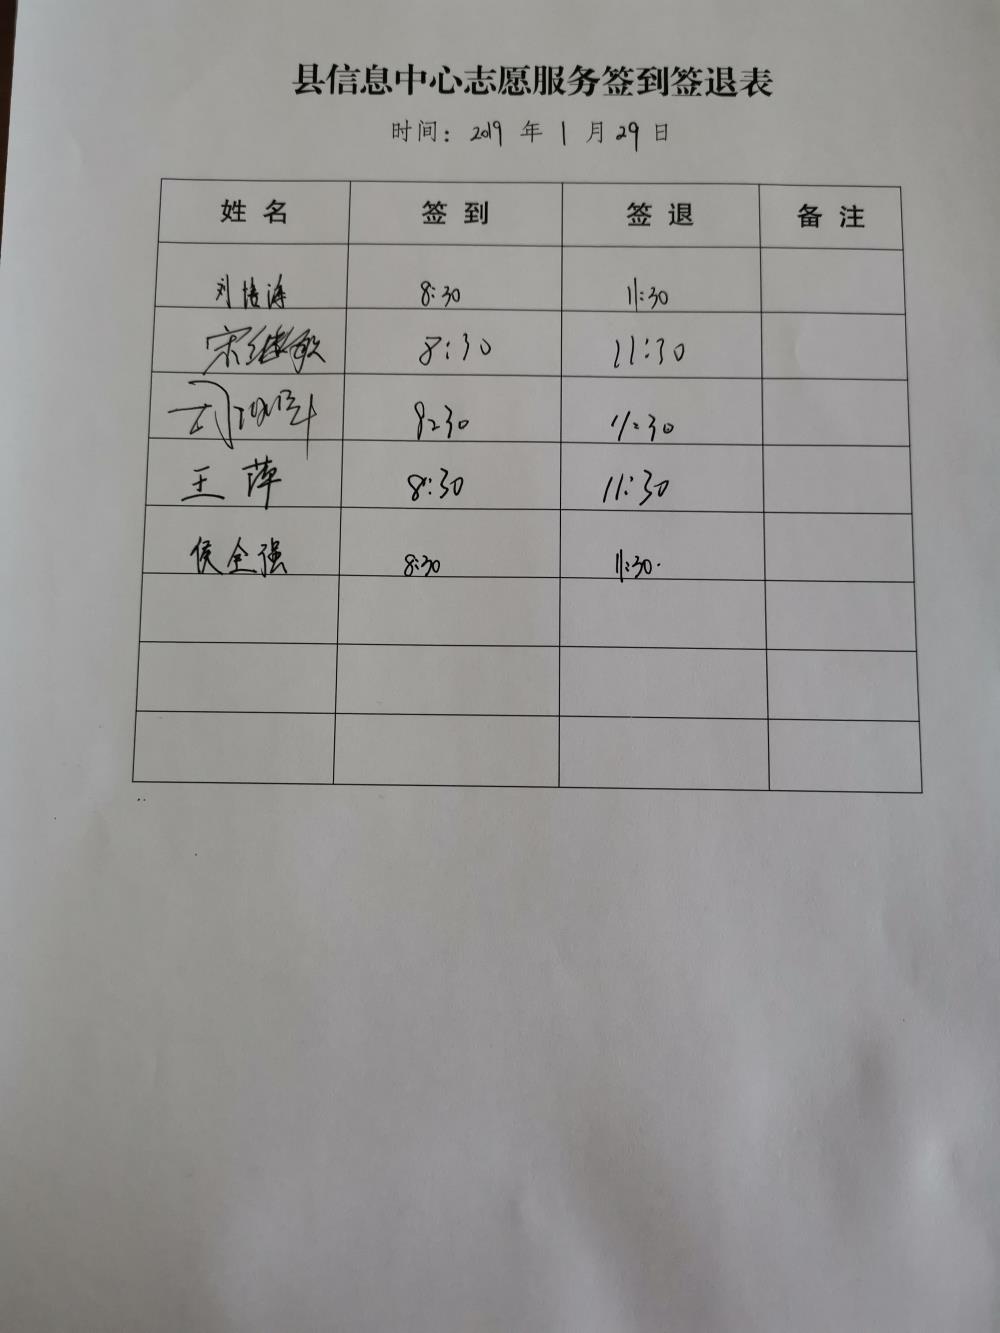 县信息中心志愿服务签到签退表
时间：2019 年 1 月 29 日
姓名 签到 签退 备注
刘培海 8:30 11:30
宋继敏 8:30 11:30
8:30 11:30
王萍 8:30 11:30
侯全强 8:30 11:30